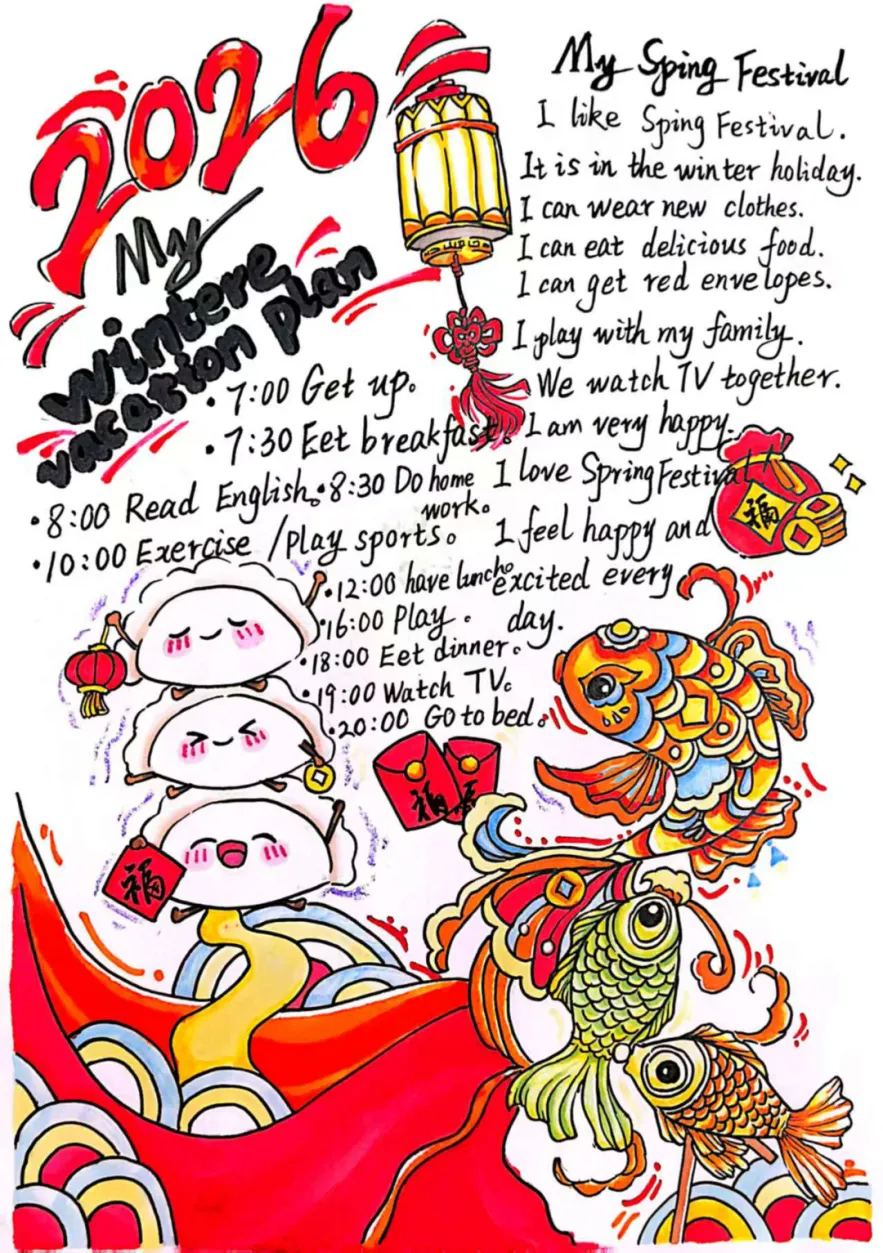 2026
My
wintere
vacation plan
• 7:00 Get up。
• 7:30 Eet breakfast。
• 8:00 Read English。• 8:30 Do home
work。
• 10:00 Exercise / play sports。
• 12:00 have lunch。
• 16:00 Play。
• 18:00 Eet dinner。
• 19:00 Watch TV。
• 20:00 Go to bed。
My Sping Festival
I like Sping Festival.
It is in the winter holiday.
I can wear new clothes.
I can eat delicious food.
I can get red envelopes.
I play with my family.
We watch TV together.
I am very happy.
I love Spring Festival!
I feel happy and
excited every
day.
福
福
福
福